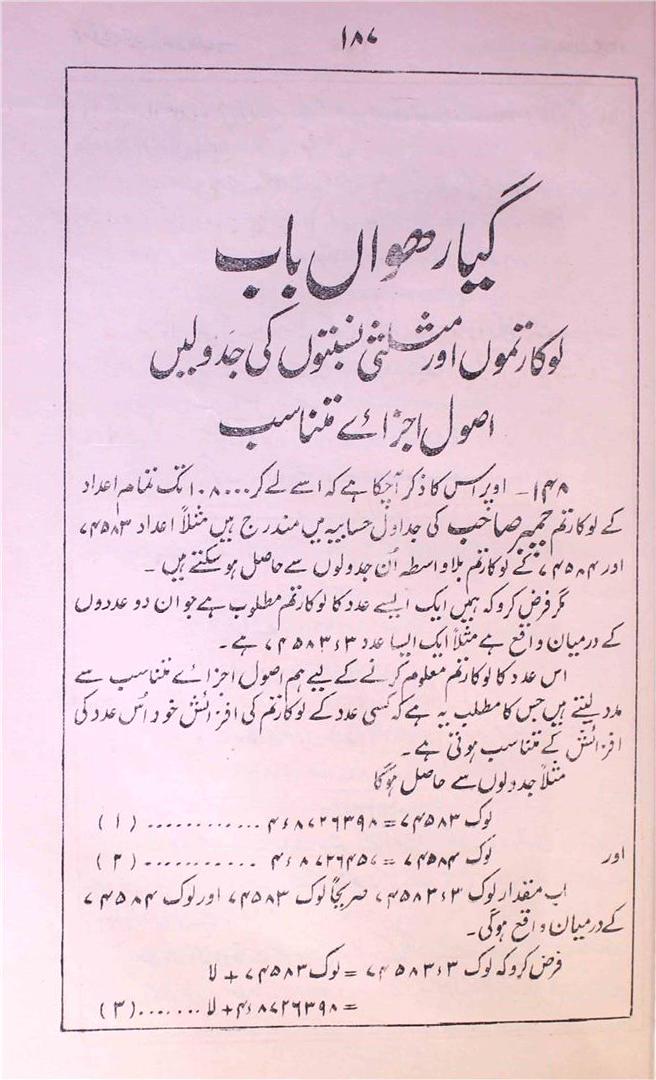 ۱۸۷
گیارھواں باب
لوکارتموں اور مثلثی نسبتوں کی جدولیں
اصول اجزائے متناسب
۱۴۸ ۔ اوپر اس کا ذکر آچکا ہے کہ ا سے لے کر ۱۰۸۰۰۰ تک تمام اعداد
کے لوکارتم چیمبر صاحب کی جداول حسابیہ میں مندرج ہیں مثلاً اعداد ۷۴۵۸۳
اور ۷۴۵۸۴ کے لوکارتم بلا واسطہ اُن جدولوں سے حاصل ہو سکتے ہیں ۔
مگر فرض کرو کہ ہمیں ایک ایسے عدد کا لوکارتم مطلوب ہے جو ان دو عددوں
کے درمیان واقع ہے مثلاً ایک ایسا عدد ۷۴۵۸۳۶۳ ہے۔
اس عدد کا لوکارتم معلوم کرنے کے لیے ہم اصول اجزائے متناسب سے
مدد لیتے ہیں جس کا مطلب یہ ہے کہ کسی عدد کے لوکارتم کی افزائش خود اُس عدد کی
افزائش کے متناسب ہوتی ہے۔
مثلاً جدولوں سے حاصل ہوگا
لوک ۷۴۵۸۳ = ۴۶۸۷۲۶۳۹۸ ............ (۱)
اور لوک ۷۴۵۸۴ = ۴۶۸۷۲۶۴۵۷ ........... (۲)
اب مقدار لوک ۷۴۵۸۳۶۳ صریحاً لوک ۷۴۵۸۳ اور لوک ۷۴۵۸۴
کے درمیان واقع ہوگی۔
فرض کرو کہ لوک ۷۴۵۸۳۶۳ = لوک ۷۴۵۸۳ + لا
= ۴۶۸۷۲۶۳۹۸ + لا ....... (۳)